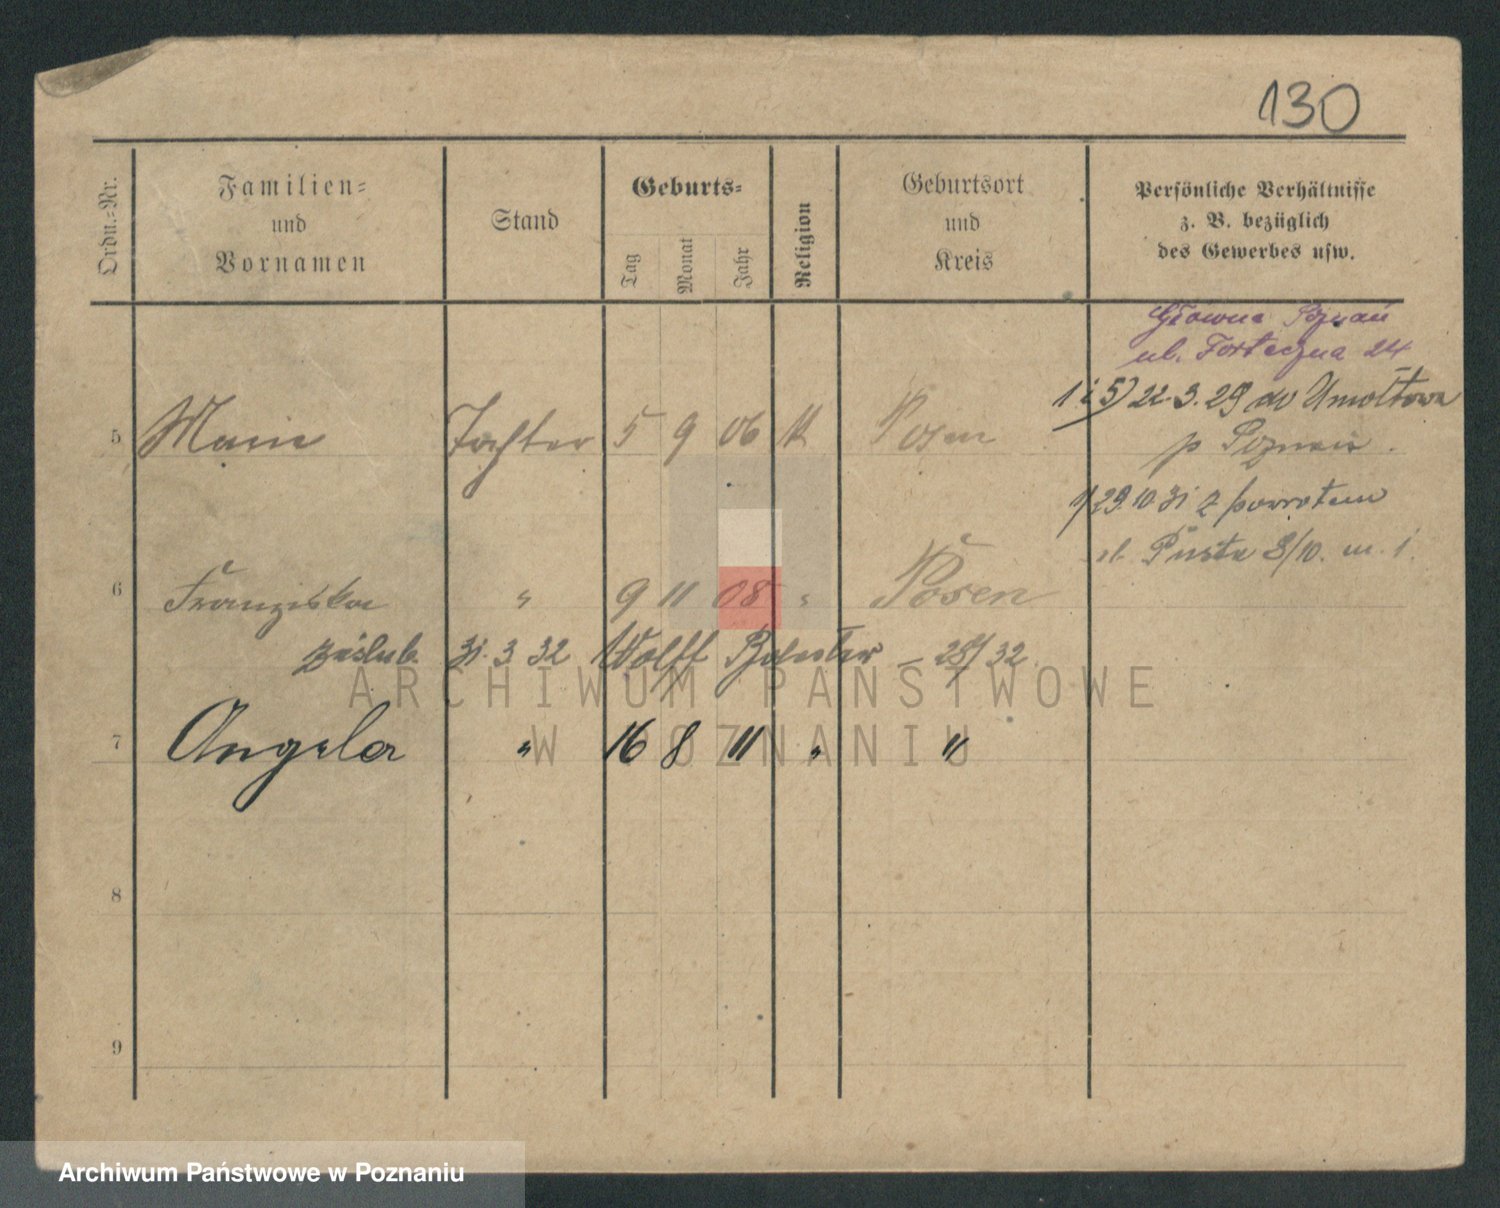 130
Ordn.-Nr.
Familien-
und
Vornamen
Stand
Geburts-
Tag
Monat
Jahr
Religion
Geburtsort
und
Kreis
Persönliche Verhältnisse
z. B. bezüglich
des Gewerbes usw.
Główna Poznań
ul. Forteczna 24
1 i 5) 22.3.29 do Umołtowa
p Poznań.
5 Marie Tochter 5 9 06 K Posen
1) 29.10.31 z powrotem
ul. Pusta 8/10. m. 1.
6 Franziska " 9 11 08 " Posen
zaślub. 31.3 32 Wolff – 32
7 Angela " 16 8 11 " "
8
9
ARCHIWUM PAŃSTWOWE
W POZNANIU
Archiwum Państwowe w Poznaniu